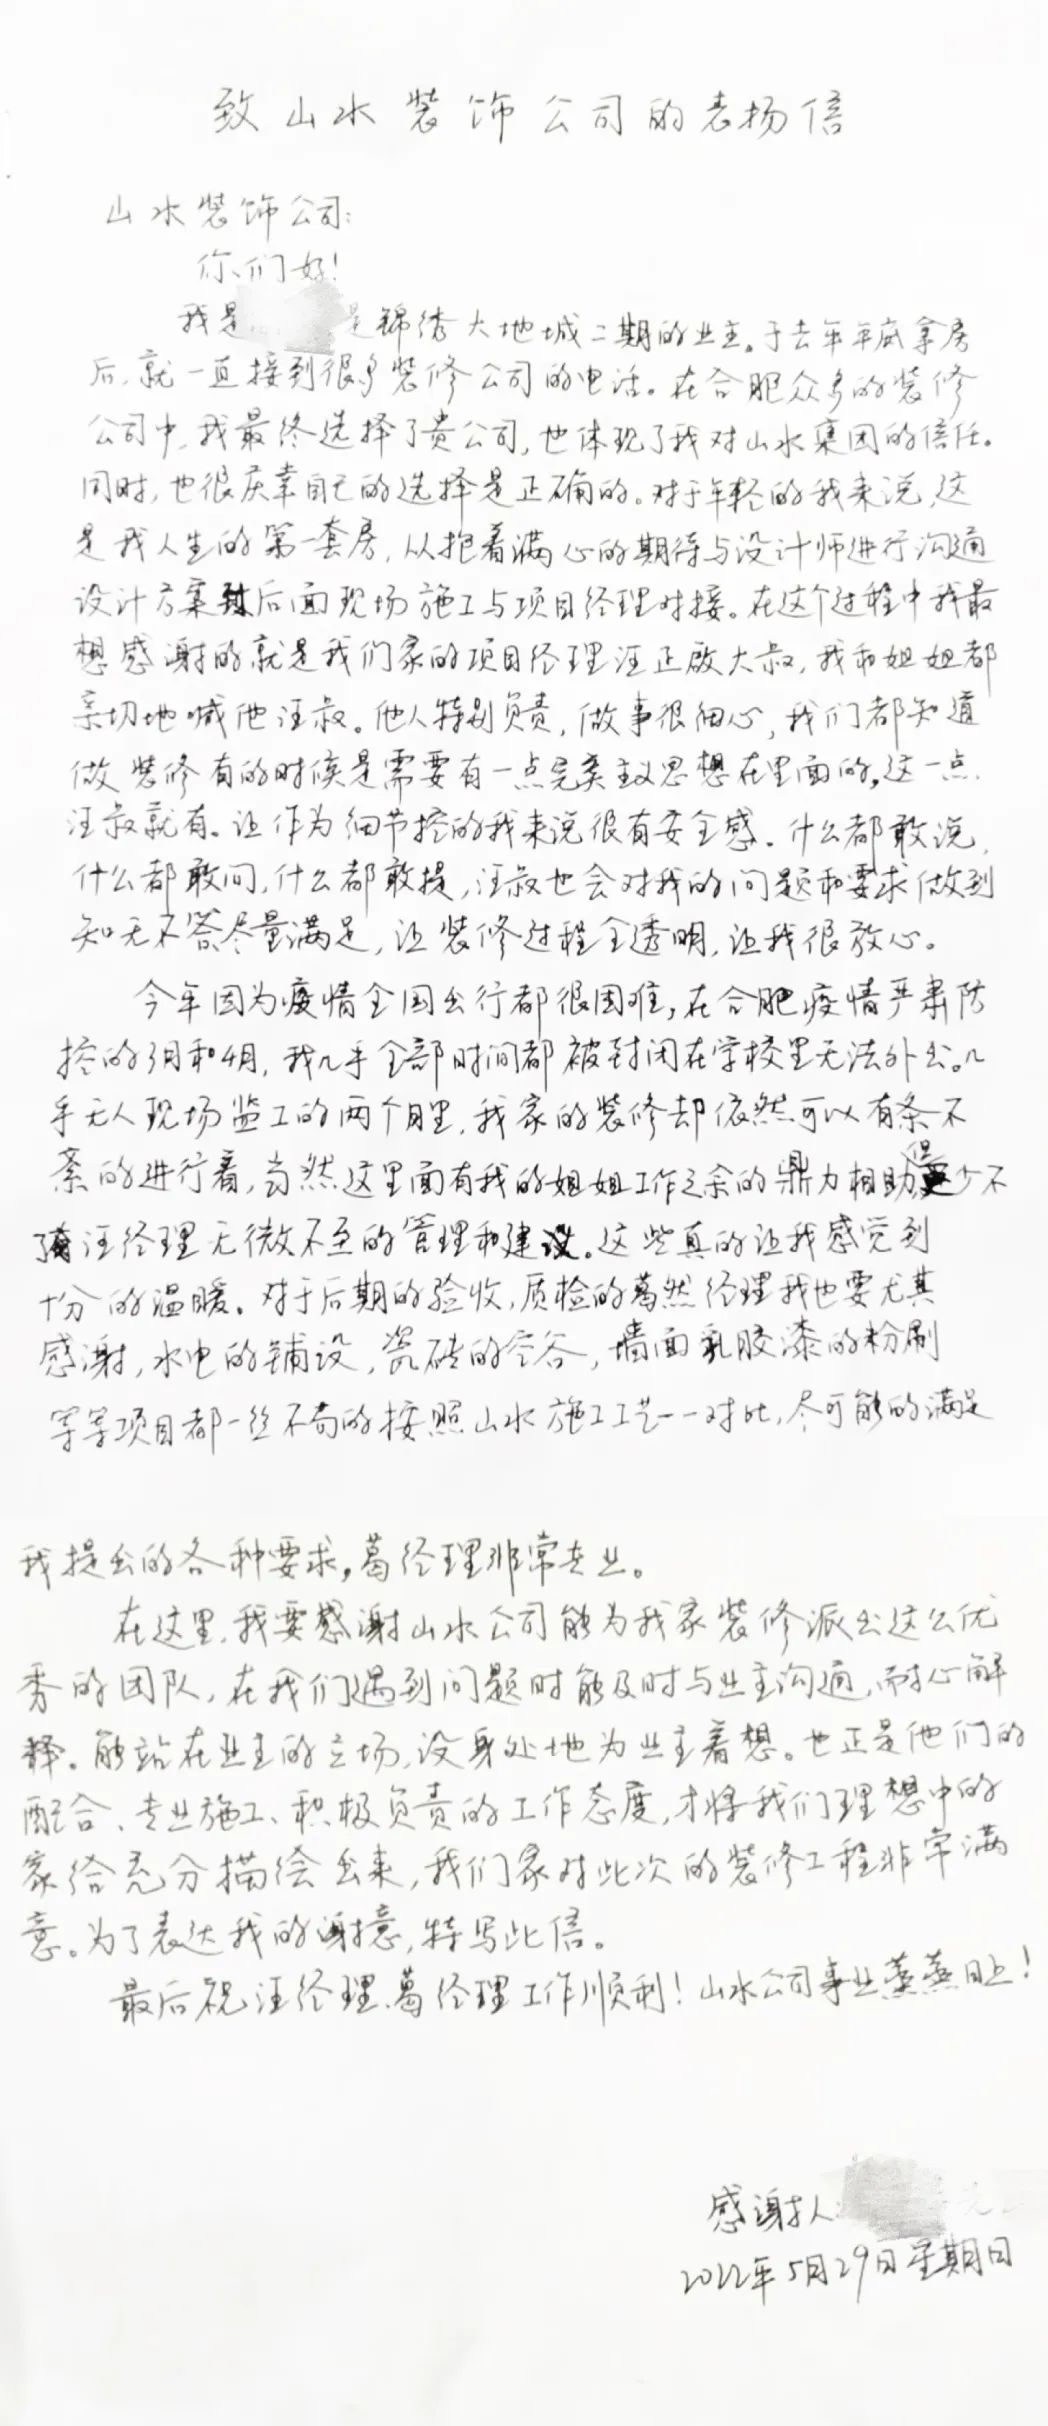 致山水装饰公司的表扬信
山水装饰公司:
你们好!
我是 是锦绣大地城二期的业主。于去年年底拿房
后,就一直接到很多装修公司的电话。在合肥众多的装修
公司中,我最终选择了贵公司,也体现了我对山水集团的信任。
同时,也很庆幸自己的选择是正确的。对于年轻的我来说,这
是我人生的第一套房,从抱着满心的期待与设计师进行沟通
设计方案到后面现场施工与项目经理对接。在这个过程中我最
想感谢的就是我们家的项目经理汪正啟大叔,我和姐姐都
亲切地喊他汪叔。他人特别负责,做事很细心,我们都知道
做装修有的时候是需要有一点完美主义思想在里面的,这一点
汪叔就有。让作为细节控的我来说很有安全感。什么都敢说,
什么都敢问,什么都敢提,汪叔也会对我的问题和要求做到
知无不答尽量满足,让装修过程全透明,让我很放心。
今年因为疫情全国出行都很困难,在合肥疫情严肃防
控的3月和4月,我几乎全部时间都被封闭在学校里无法外出。几
乎无人现场监工的两个月里,我家的装修却依然可以有条不
紊的进行着,当然这里面有我的姐姐工作之余的鼎力相助,但更少不
了汪经理无微不至的管理和建议。这些真的让我感觉到
十分的温暖。对于后期的验收,质检的葛然经理我也要尤其
感谢,水电的铺设,瓷砖的空谷,墙面乳胶漆的粉刷
等等项目都一丝不苟的按照山水施工工艺一一对比,尽可能的满足
我提出的各种要求,葛经理非常专业。
在这里,我要感谢山水公司能为我家装修派出这么优
秀的团队,在我们遇到问题时能及时与业主沟通,耐心解
释。能站在业主的立场,设身处地为业主着想。也正是他们的
配合、专业施工、积极负责的工作态度,才将我们理想中的
家给充分描绘出来,我们家对此次的装修工程非常满
意。为了表达我的谢意,特写此信。
最后祝汪经理、葛经理工作顺利!山水公司事业蒸蒸日上!
感谢人:
2022年5月29日星期日